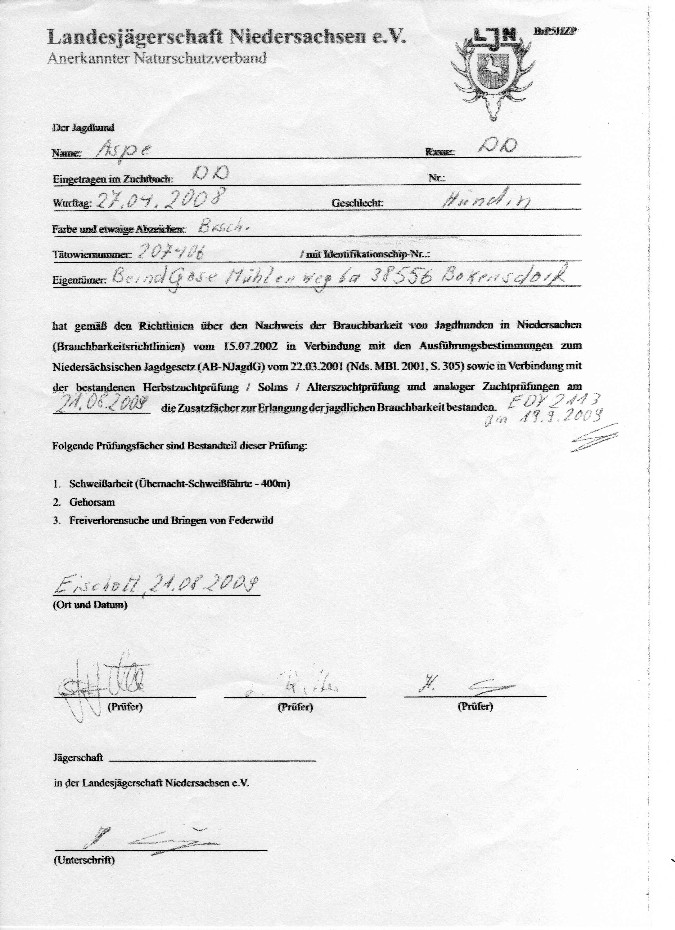 Landesjägerschaft Niedersachsen e.V.
Anerkannter Naturschutzverband
LJN
BrP5HZP
Der Jagdhund
Name: Aspe Rasse: DD
Eingetragen im Zuchtbuch: DD Nr.:
Wurftag: 27.04.2008 Geschlecht: Hündin
Farbe und etwaige Abzeichen: Brsch.
Tätowiernummer: 207406 / mit Identifikationschip-Nr..:
Eigentümer: Bernd Gose Mühlenweg 6a 38556 Bokensdorf
hat gemäß den Richtlinien über den Nachweis der Brauchbarkeit von Jagdhunden in Niedersachen
(Brauchbarkeitsrichtlinien) vom 15.07.2002 in Verbindung mit den Ausführungsbestimmungen zum
Niedersächsischen Jagdgesetz (AB-NJagdG) vom 22.03.2001 (Nds. MBl. 2001, S. 305) sowie in Verbindung mit
der bestandenen Herbstzuchtprüfung / Solms / Alterszuchtprüfung und analoger Zuchtprüfungen am
21.08.2009 die Zusatzfächer zur Erlangung der jagdlichen Brauchbarkeit bestanden.
am 19.9.2009
Folgende Prüfungsfächer sind Bestandteil dieser Prüfung:
1. Schweißarbeit (Übernacht-Schweißfährte - 400m)
2. Gehorsam
3. Freiverlorensuche und Bringen von Federwild
Eischott, 21.08.2009
(Ort und Datum)
(Prüfer) (Prüfer) (Prüfer)
Jägerschaft
in der Landesjägerschaft Niedersachsen e.V.
(Unterschrift)